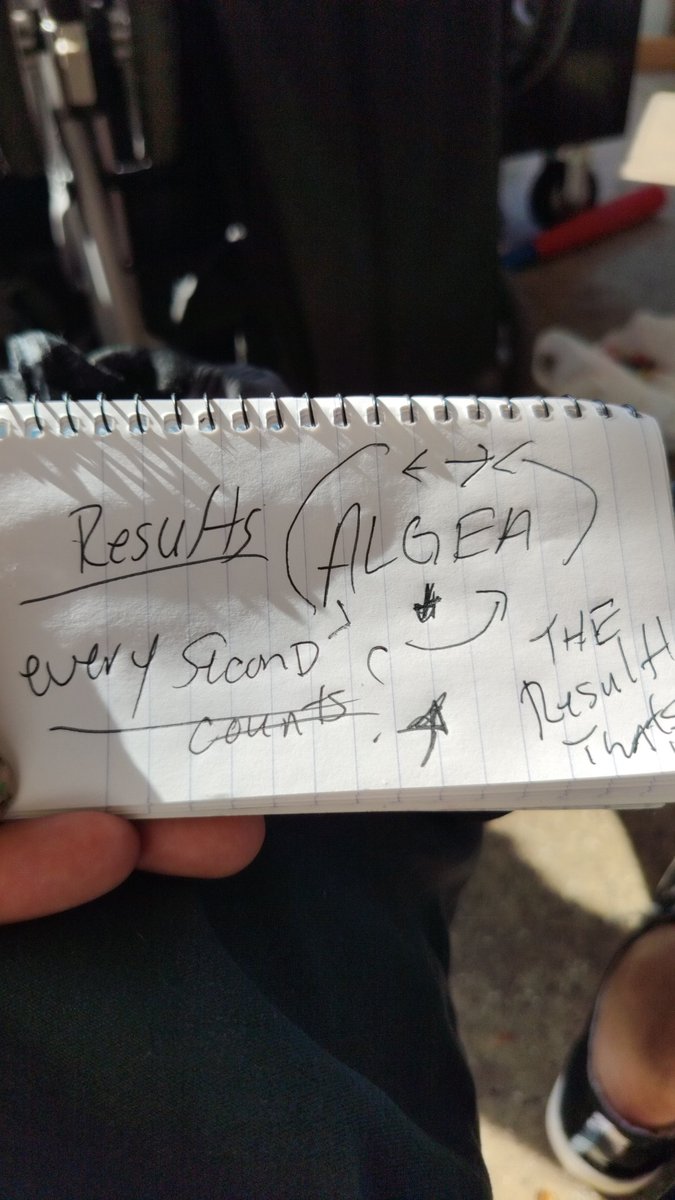 Results (ALGEA)
every second
counts
THE
Result
Thats